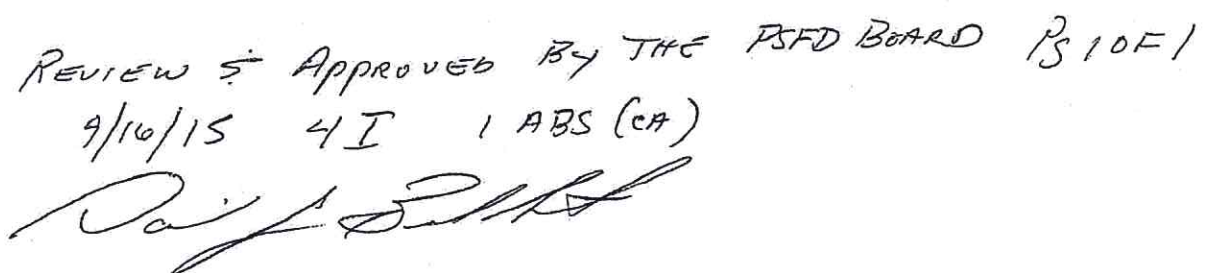 REVIEW & APPROVED BY THE PSFD BOARD PG 1 OF 1
9/16/15 4 I 1 ABS (CA)